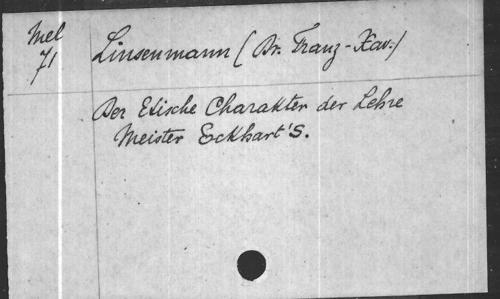 Mel
71
Linsenmann (Dr. Franz-Xav.)
Der Etische Charakter der Lehre
Meister Eckhart's.